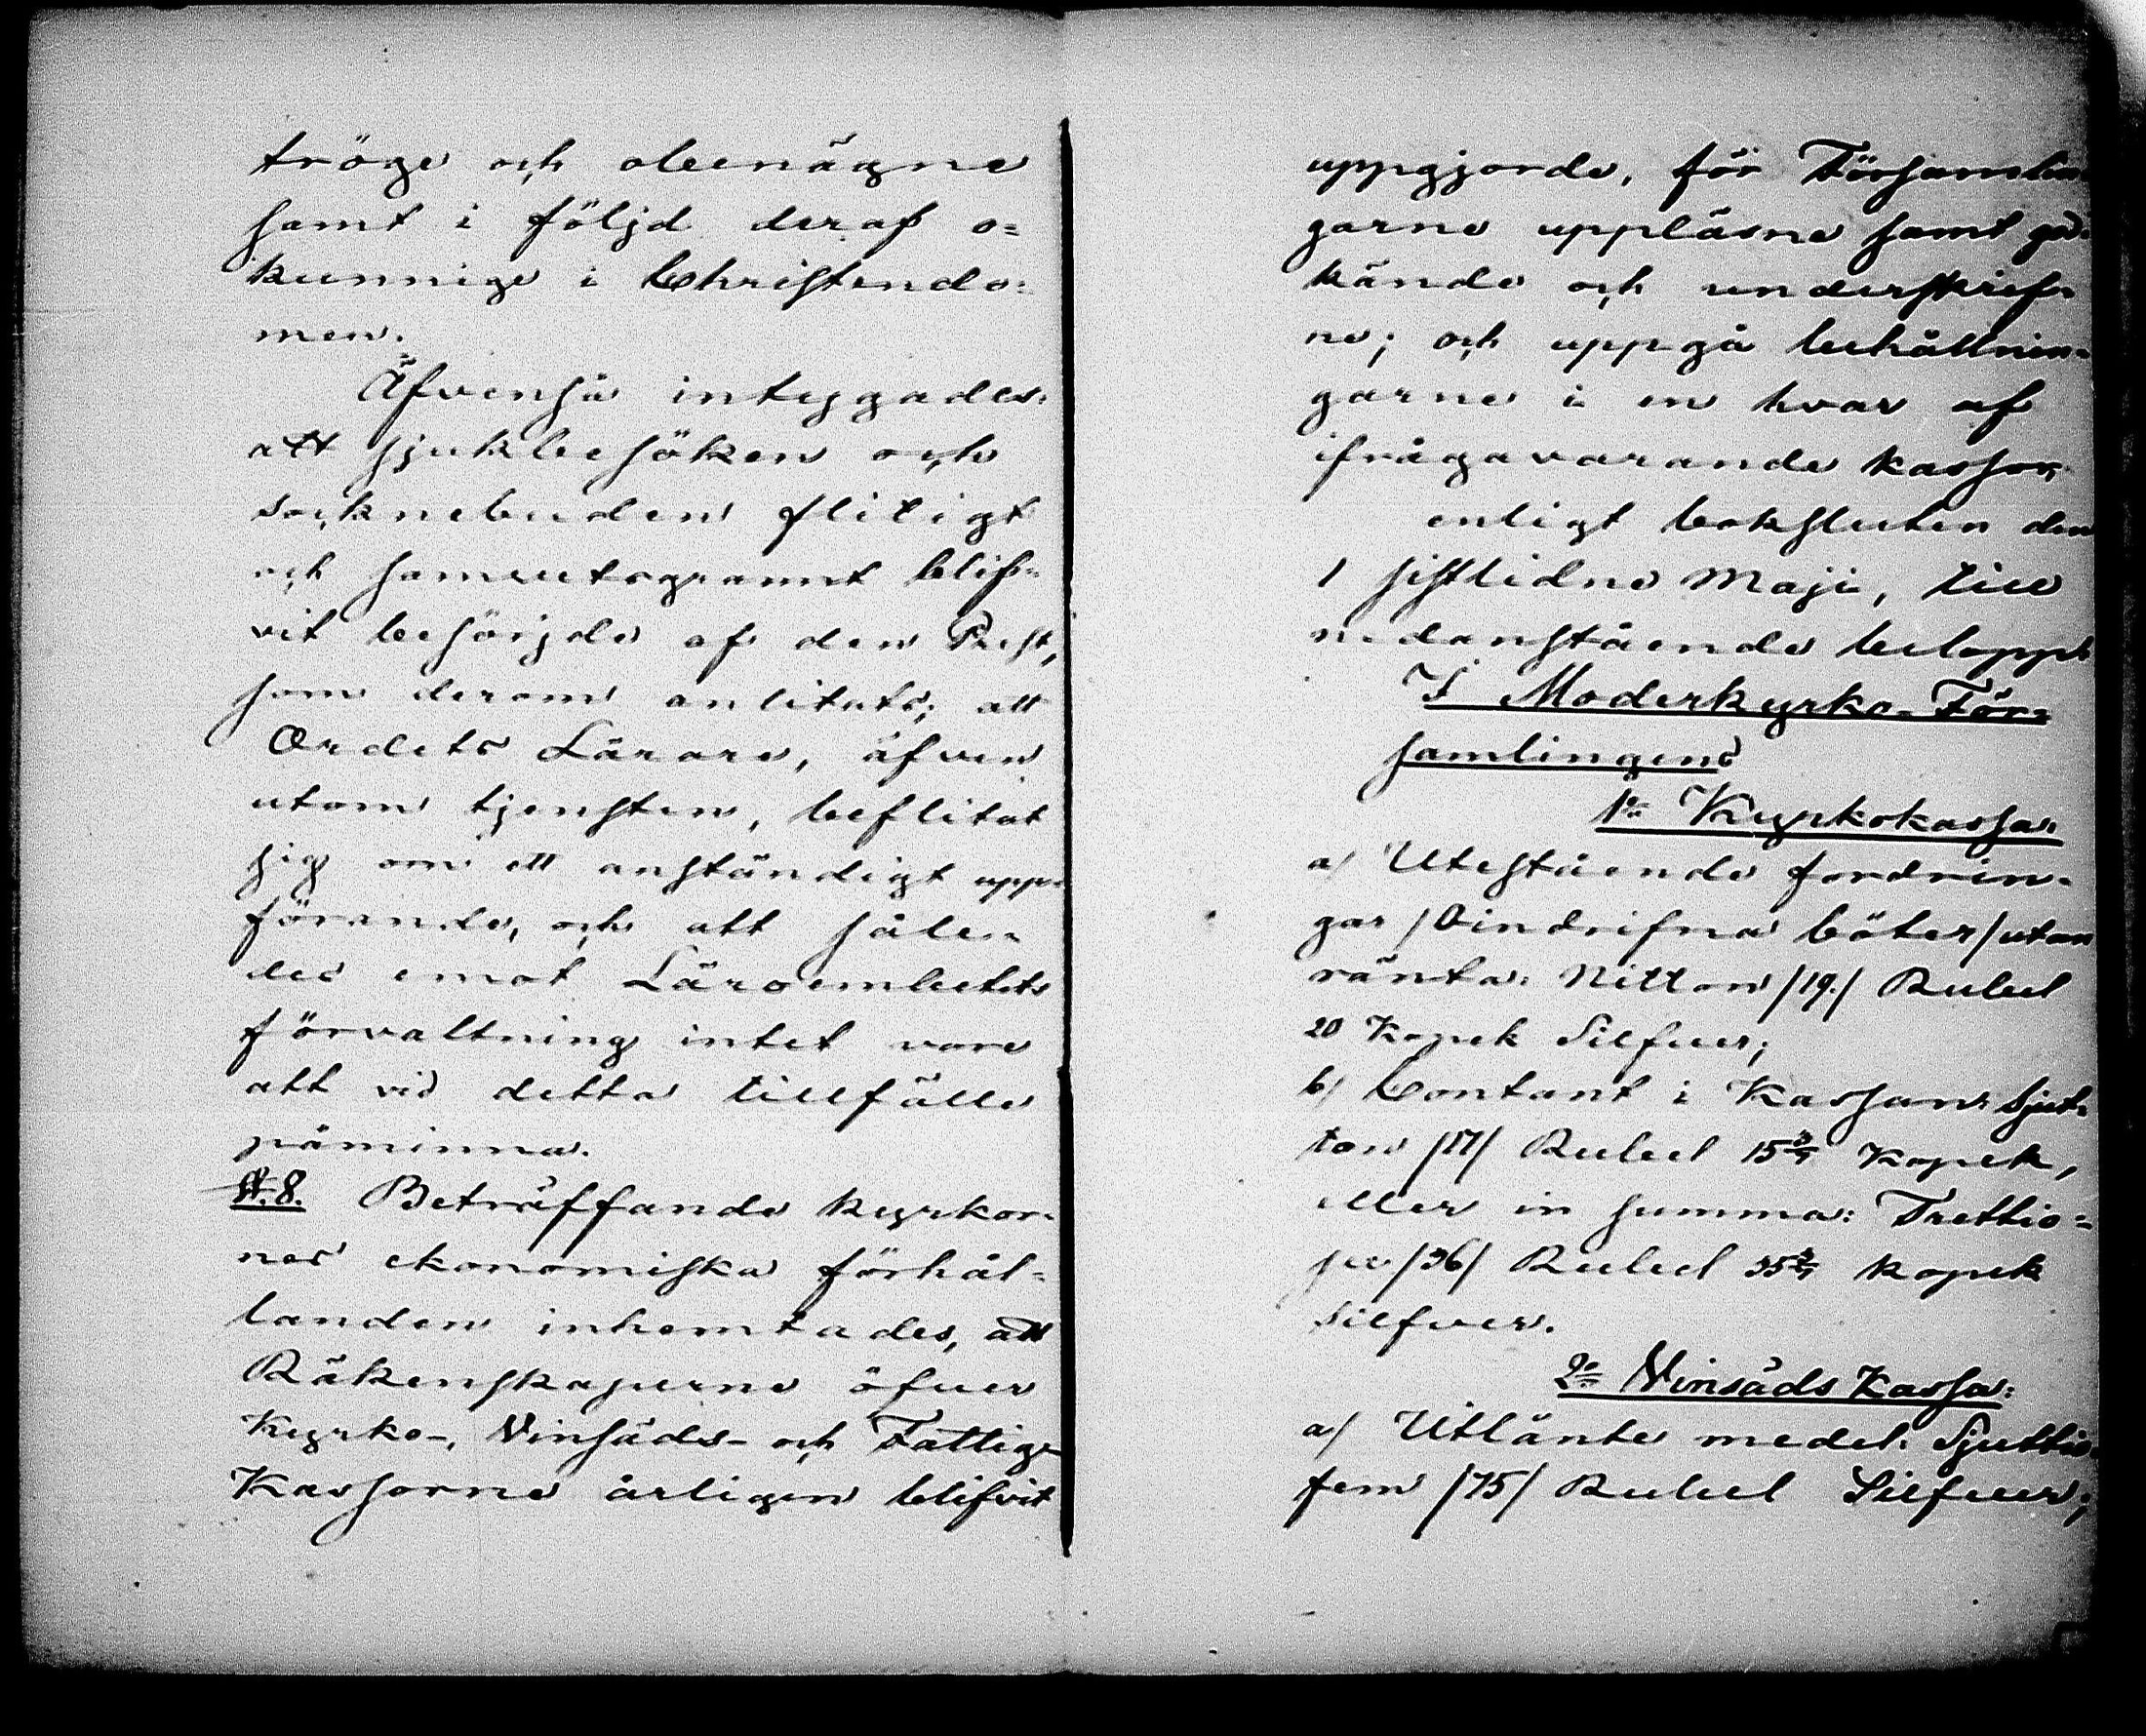 tröge och obenägne
samt i följd deraf o=
kunnige i Christendo=
men.
Äfvenså intygades:
att sjukbesöken och
socknebuden flitigt
och samvetsgrannt blif=
vit besörjde af den Prest,
som derom anlitats; att
Ordets Lärare, äfven
utom tjensten, beflitat
sig om ett anständigt upp=
förande, och att såle=
des emot Läroembetets
förvaltning intet vore
att vid detta tillfälle
påminna.
§. 8. Beträffande kyrkor=
nas ekonomiska förhål=
landen inhemtades, att
Räkenskaperne öfver
Kyrko-, Vinsäds- och Fattig-
Kassorne årligen blifvit
uppgjorde, för Församlin=
garne uppläsne samt god=
kände och underskrif=
ne; och uppgå behållnin=
garne i en hvar af
ifrågavarande kassor,
enligt boksluten den
1 sistlidne Maji, till
nedanstående belopp:
I Moderkyrko-För=
samlingens
1o Kyrkokassa:
a/ Utestående fordrin=
gar /Oindrifna böter/ utan
ränta: Nitton /19./ Rubel
20 Kopek Silfver;
b/ Contant i Kassan: Sjut=
ton /17/ Rubel 15 3/7 Kopek,
eller in summa: Trettio=
sex /36/ Rubel 35 3/7 kopek
silfver.
2o Vinsäds Kassa:
a/ Utlånte medel: Sjuttio=
fem /75/ Rubel Silfver;